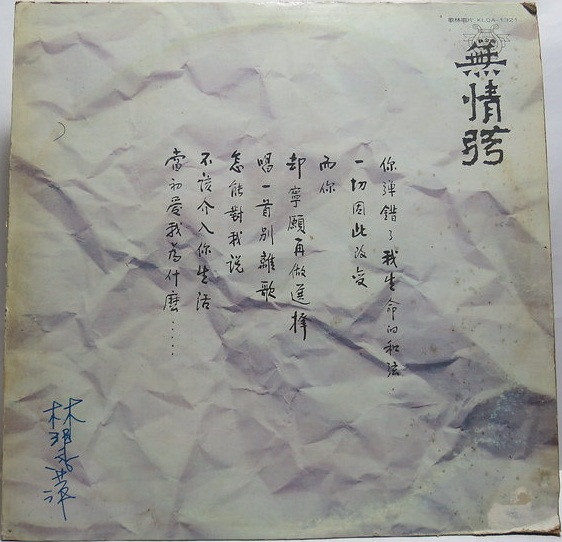 歌林唱片 KLGA-1321
無情弦
你彈錯了我生命的和弦.
一切因此改变
而你
却寧願再做選擇
唱一首別離歌
怎能對我说
不该介入你生活
當初愛我為什麼.....
林